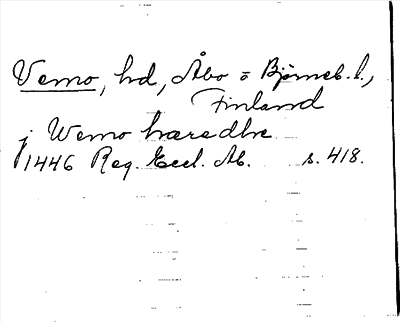 Vemo, hd, Åbo o Björneb. l.,
Finland
j Wemo hæredhe
1446 Reg. Eccl. Ab. s. 418.